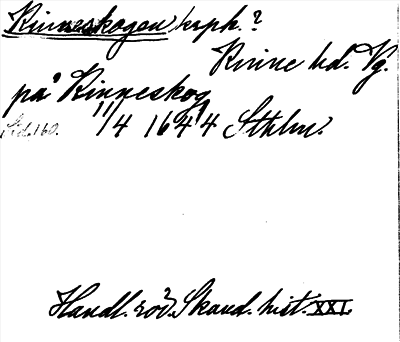 Kinneskogen krph.?
Kinne hd. Vg.
på Kinneskog
11/4 1644 Sthlm.
Sid. 160.
Handl. rör. Skand. hist. XXI.